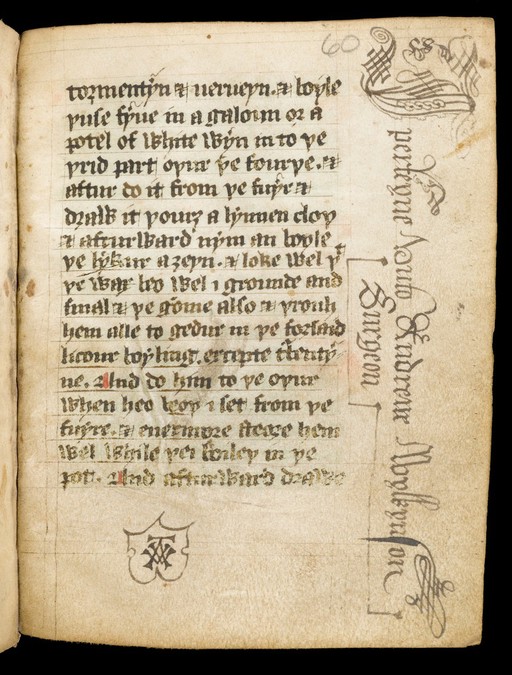 60
tormentyn & verveyn. & boyle
yuse fyve in a galoun or a
potel of white wyn in to þe
þrid part, ovur þe fourþe. &
aftur do it from þe fuyr &
draw it þourȝ a lynnen cloþ
& afturward nym an boyle
þe lykur aȝeyn. & loke wel þt
þe wax beo wel i grounde and
smal & þe gome also & þrouh
hem alle to gedur in þe forsaid
licour boyling. excepte t̃benty
ne. And do him to þe ovur
when heo beoþ i set from þe
fuyre. & evermore steore hem
wel while þei boiley in þe
pott. And afturward drawe
perteyne Andrewe Noyleynson
Surgeon